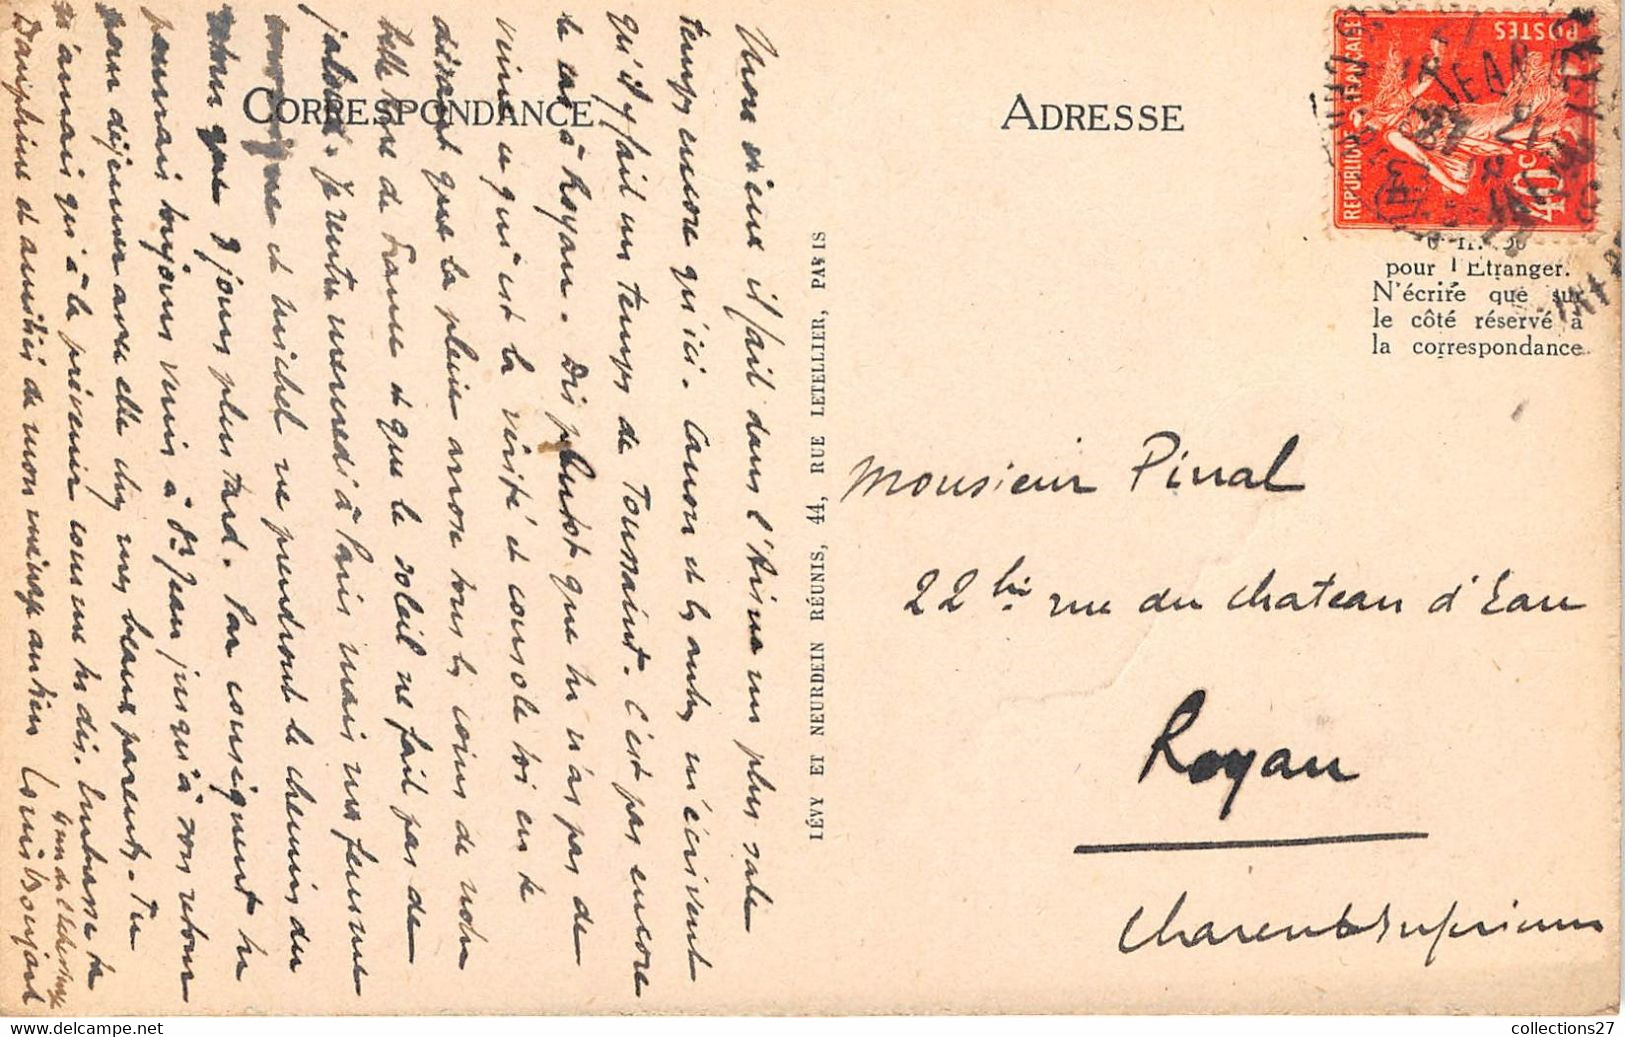 CORRESPONDANCE
ADRESSE
RÉPUBLIQUE FRANÇAISE
POSTES
40c
pour l'Etranger.
N'écrire que sur
le côté réservé à
la correspondance
Mon vieux il fait dans l'Aisne un plus sale
temps encore qu'ici. Canon et les autres m'écrivent
qu'il y fait un temps de Toussaint. C'est pas encore
le cas à Royan. Dis plutôt que tu n'as pas de
veine ce qui est la vérité et console toi en te
disant que la pluie arrose tous les coins de notre
belle terre de France et que le soleil ne fait pas de
jaloux. Je rentre mercredi à Paris mais ma femme
et Michel ne prendront le chemin du
que 8 jours plus tard. Par conséquent tu
pourrais toujours venir à St Jean jusqu'à son retour
pour déjeuner avec elle chez mes beaux parents. Tu
n'aurais qu'à la prévenir comme tu dis. Embrasse ta
Dauphine et amitiés de mon ménage au tien Louis Boujard
4 rue de l'Echevinage
LÉVY ET NEURDEIN RÉUNIS, 44, RUE LETELLIER, PARIS
Monsieur Pinal
22 bis rue du chateau d'Eau
Royan
Charente Inférieure
collections27